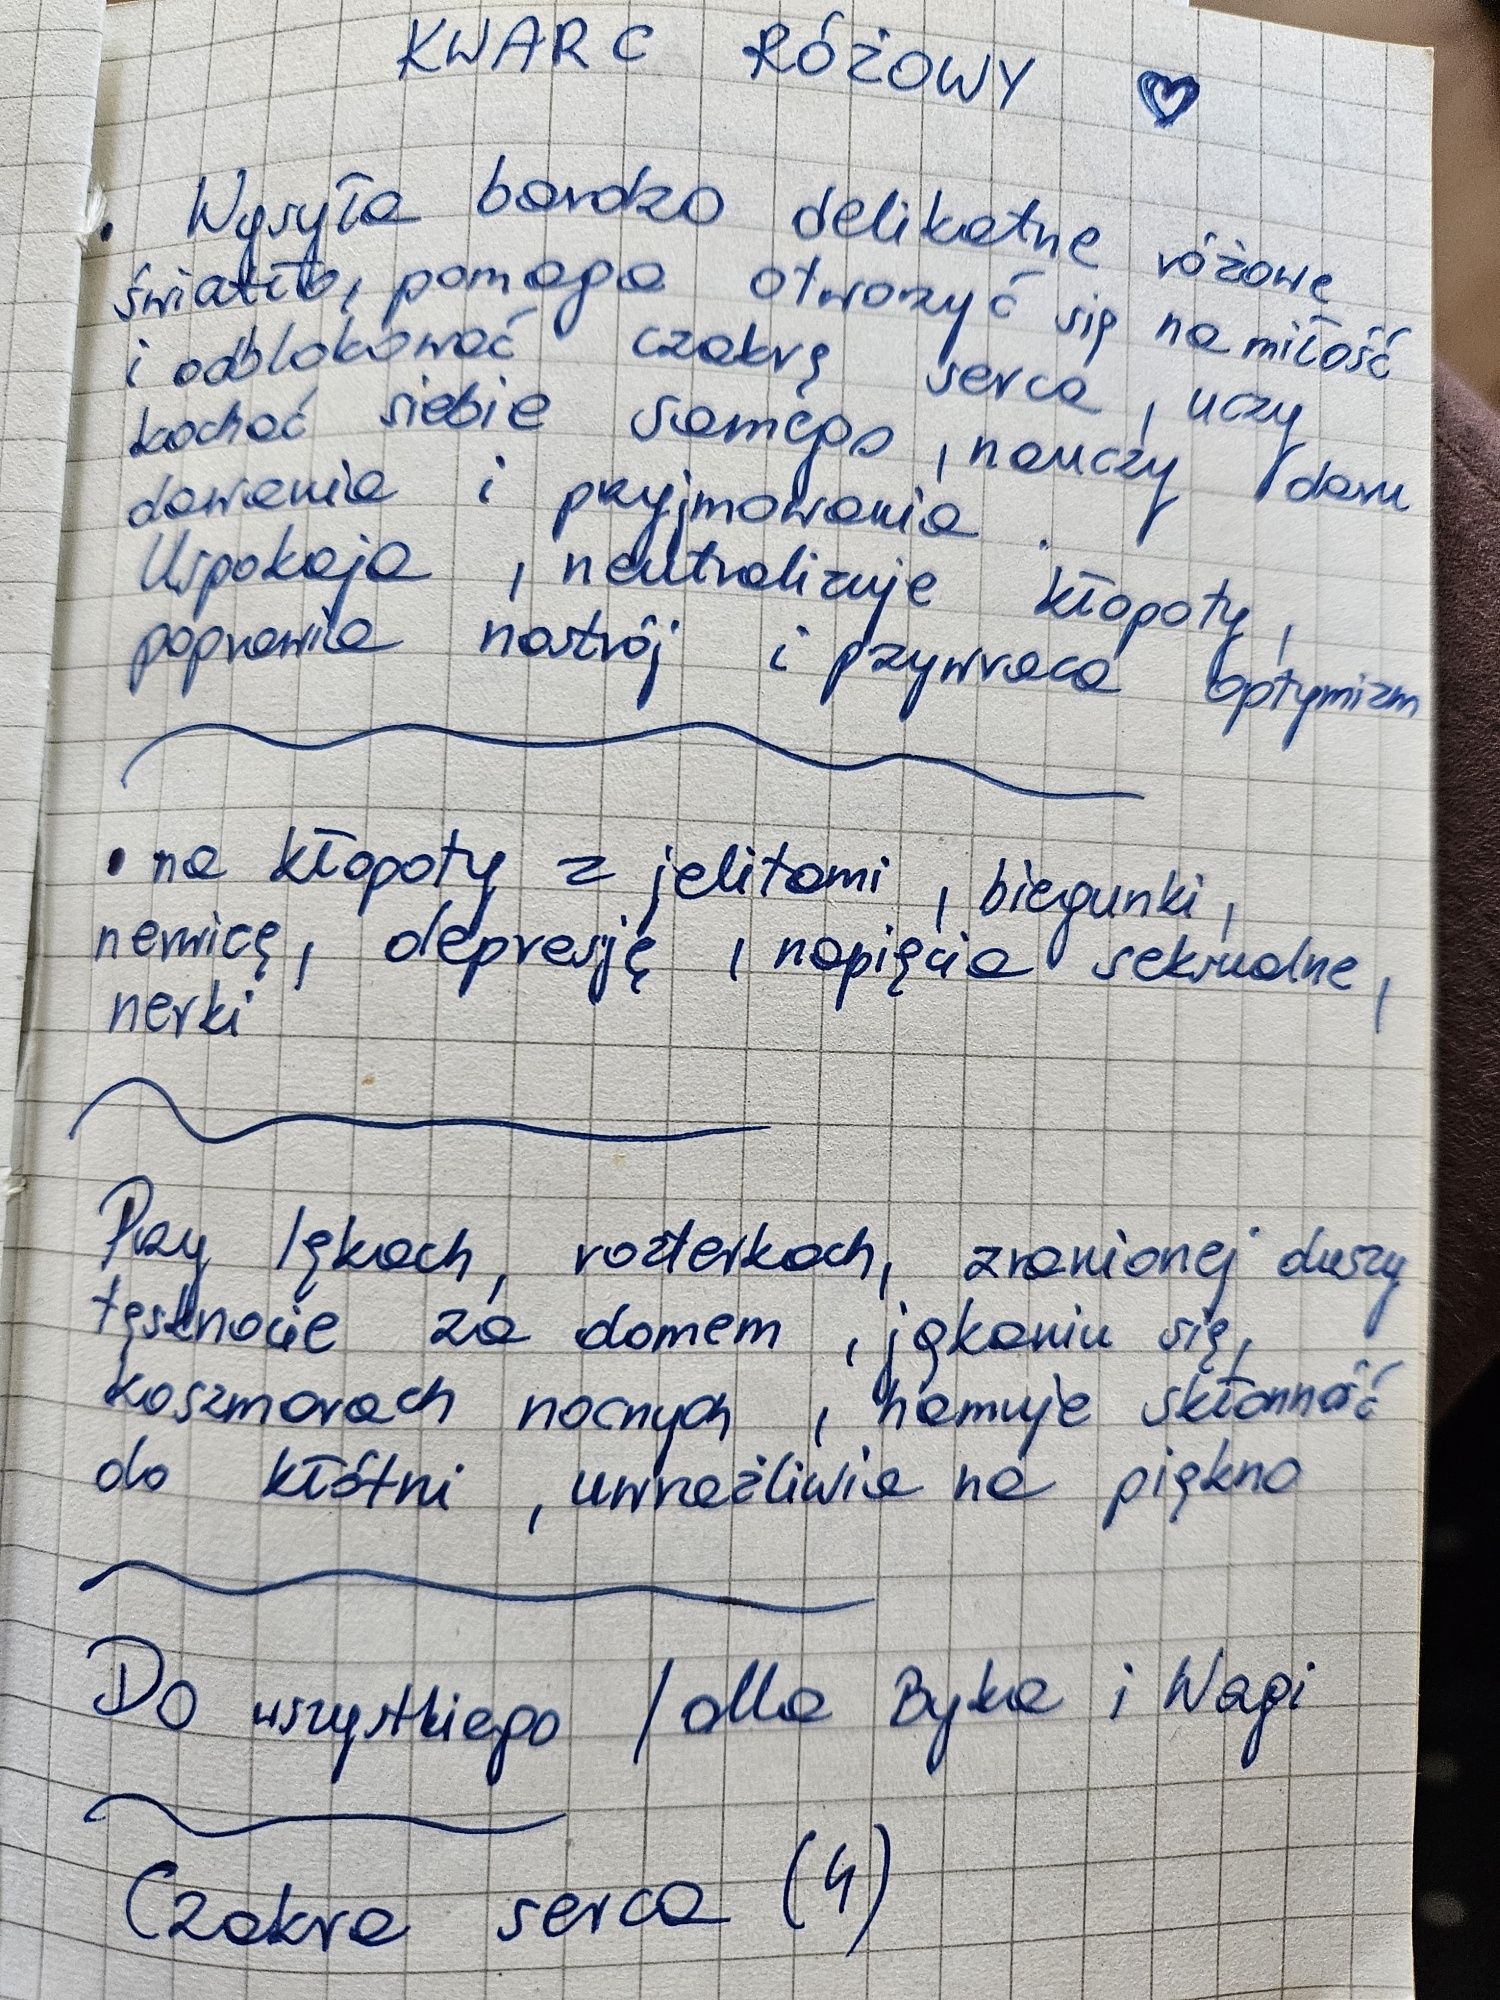 KWARC RÓŻOWY ♡
• Wysyła bardzo delikatne różowe
światło, pomaga otworzyć się na miłość
i odblokować czakrę serca, uczy
kochać siebie samego, nauczy daru
dawania i przyjmowania.
Uspokaja, neutralizuje kłopoty,
poprawia nastrój i przywraca optymizm
• na kłopoty z jelitami, biegunki,
nerwicę, depresję, napięcia seksualne,
nerki
Przy lękach, rozterkach, zranionej duszy
tęsknocie za domem, jąkaniu się,
koszmarach nocnych, hamuje skłonność
do kłótni, uwrażliwia na piękno
Do wszystkiego / dla Byka i Wagi
Czakra serca (4)